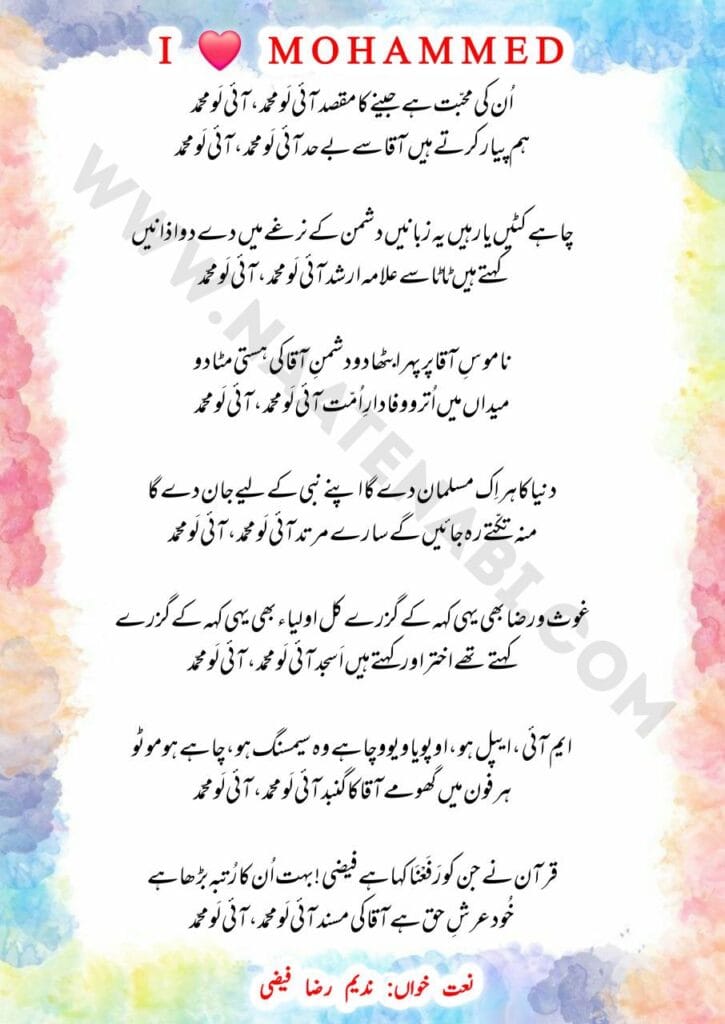 I ❤ MOHAMMED
اُن کی محبّت ہے جینے کا مقصد آئی لَو محمد، آئی لَو محمد
ہم پیار کرتے ہیں آقا سے بے حد آئی لَو محمد، آئی لَو محمد
چاہے کٹیں یا رہیں یہ زبانیں دشمن کے نرغے میں دے دو اذانیں
کہتے ہیں ٹاٹا سے علامہ ارشد آئی لَو محمد، آئی لَو محمد
ناموسِ آقا پر پہرا بٹھا دو دشمنِ آقا کی ہستی مٹا دو
میداں میں اُترو وفادارِ اُمّت آئی لَو محمد، آئی لَو محمد
دنیا کا ہر اِک مسلمان دے گا اپنے نبی کے لیے جان دے گا
منہ تکّتے رہ جائیں گے سارے مرتد آئی لَو محمد، آئی لَو محمد
غوث و رضا بھی یہی کہہ کے گزرے کل اولیاء بھی یہی کہہ کے گزرے
کہتے تھے اختر اور کہتے ہیں اَسجد آئی لَو محمد، آئی لَو محمد
ایم آئی، ایپل ہو، اوپو یا ویوو چاہے وہ سیمسنگ ہو، چاہے ہو موٹو
ہر فون میں گھومے آقا کا گنبد آئی لَو محمد، آئی لَو محمد
قرآن نے جن کو رَفَعْنَا کہا ہے فیضی! بہت اُن کا رُتبہ بڑھا ہے
خُود عرشِ حق ہے آقا کی مسند آئی لَو محمد، آئی لَو محمد
نعت خواں: ندیم رضا فیضی
WWW.NAATENABI.COM